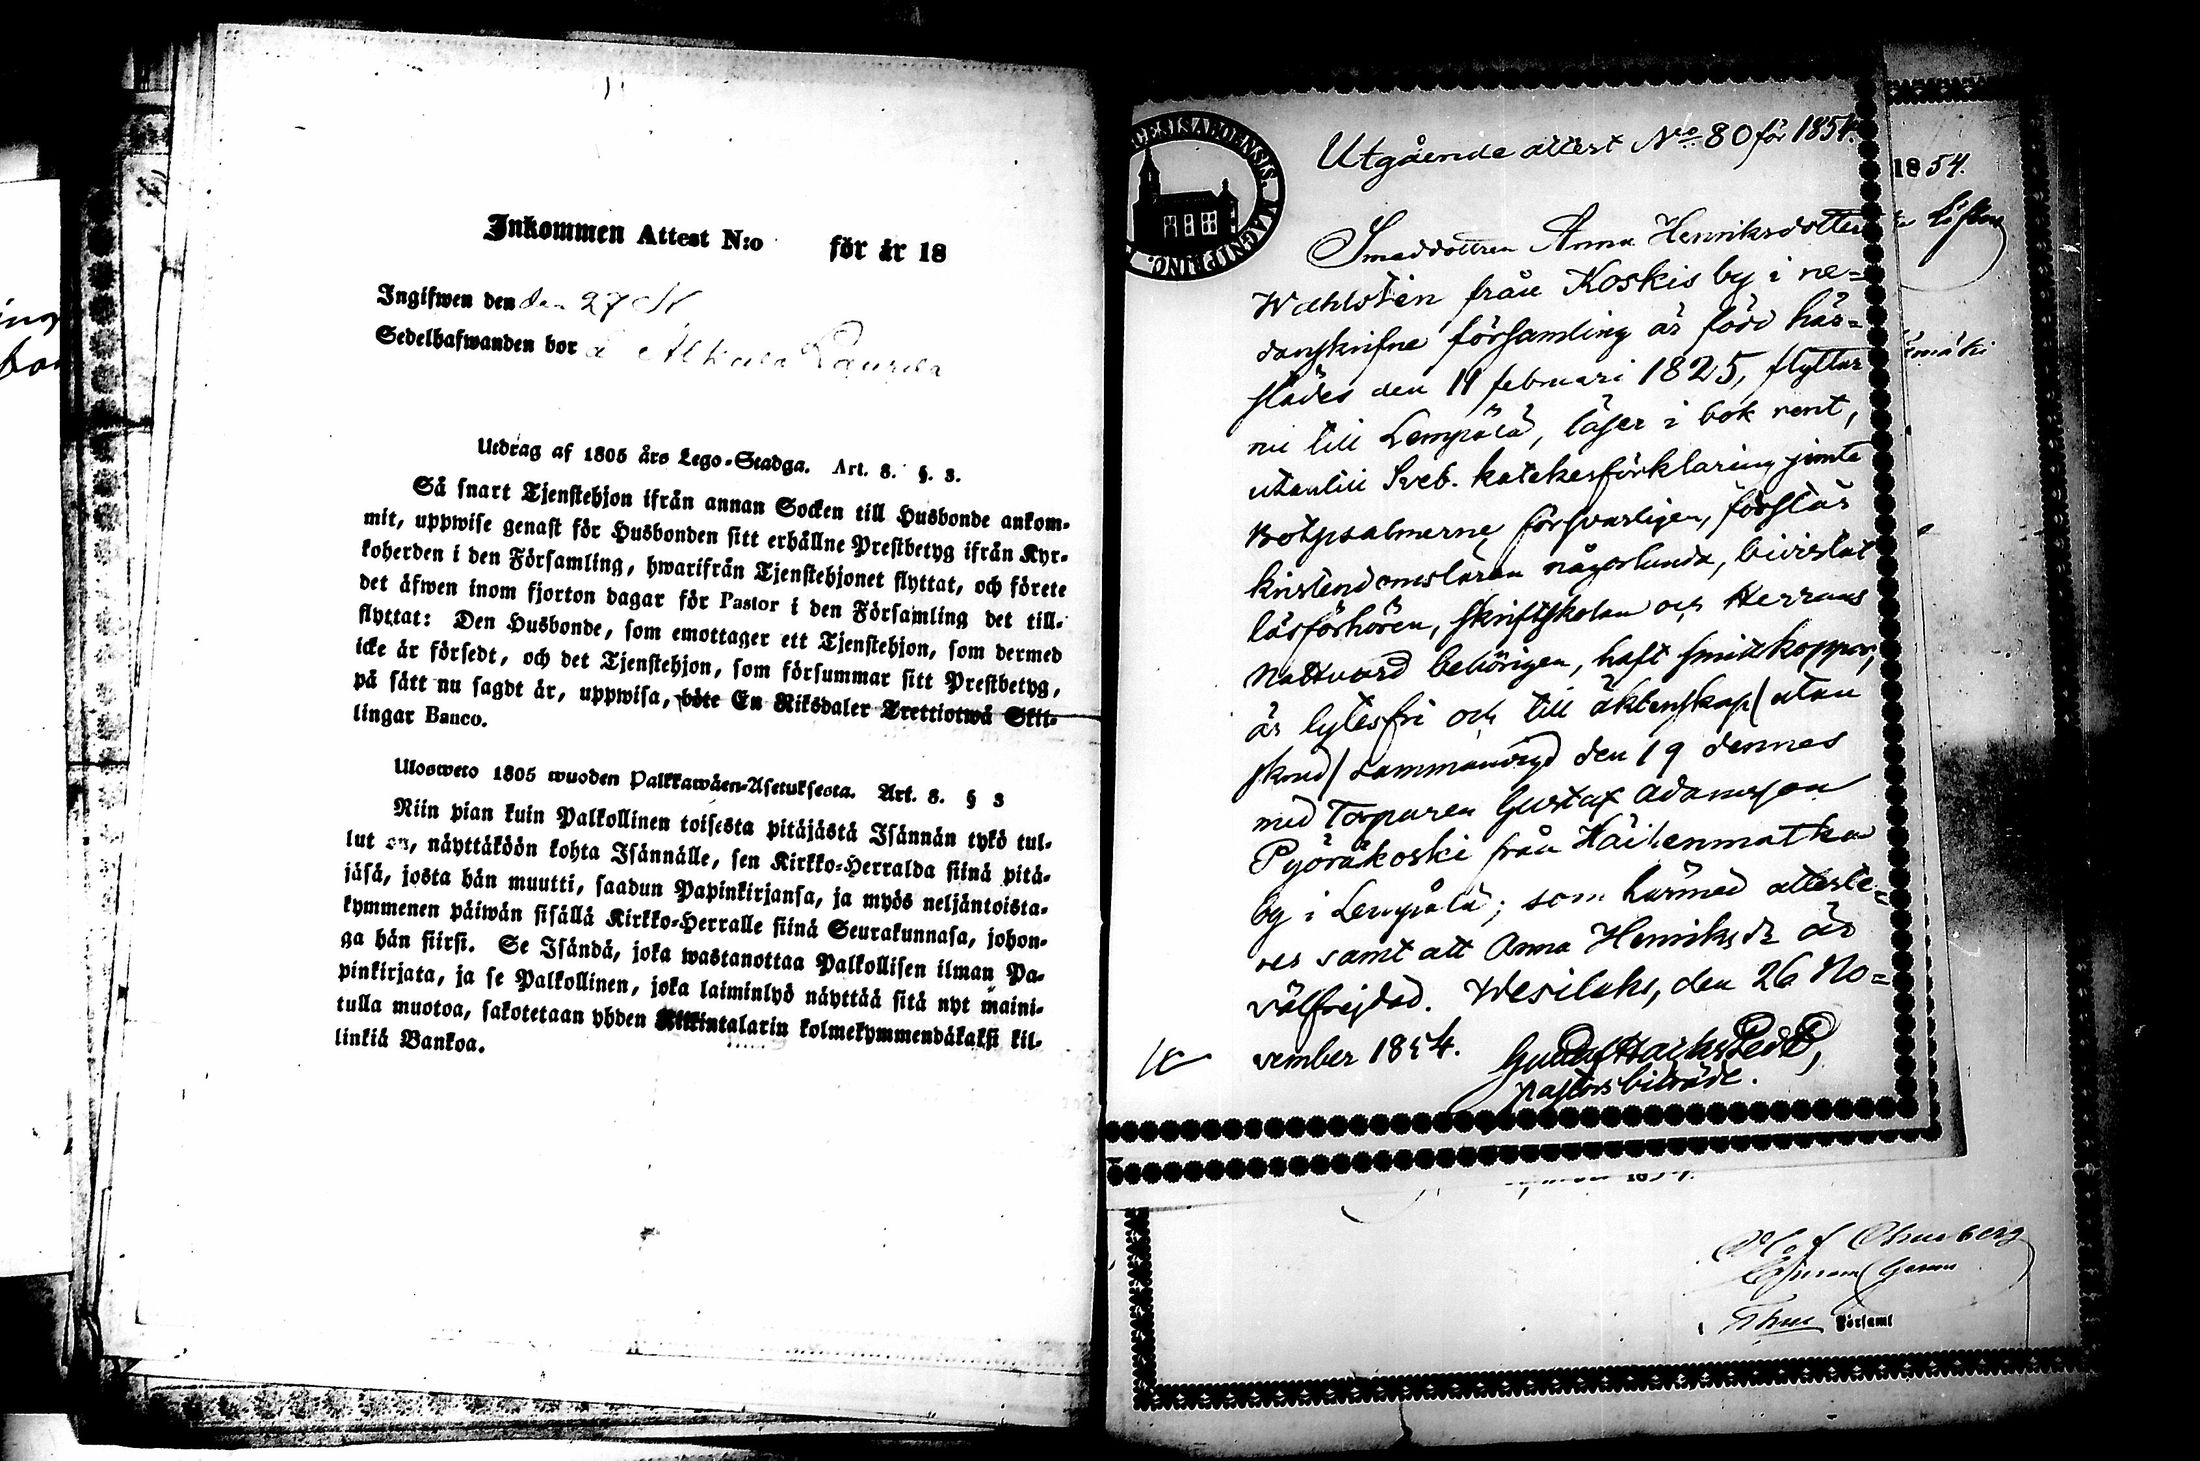 Inkommen Attest N:o för år 18
Ingifwen den den 27
Sedelhafwanden bor
Utdrag af 1805 års Lego-Stadga. Art. 8. §. 3.
Så snart Tjenstehjon ifrån annan Socken till Husbonde ankom-
mit, uppwise genast för Husbonden sitt erhållne Prestbetyg ifrån Kyr-
koherden i den Församling, hwarifrån Tjenstehjonet flyttat, och förete
det äfwen inom fjorton dagar för Pastor i den Församling det till-
flyttat: Den Husbonde, som emottager ett Tjenstehjon, som dermed
icke är försedt, och det Tjenstehjon, som försummar sitt Prestbetyg,
på sätt nu sagdt är, uppwisa, böte En Riksdaler Trettiotwå Skil-
lingar Banco.
Ulosweto 1805 wuoden Palkkawäen-Asetuksesta. Art. 8. § 3
Niin pian kuin Palkollinen toisesta pitäjästä Isännän tykö tul-
lut on, näyttäköön kohta Isännälle, sen Kirkko-Herralda siinä pitä-
jäsä, josta hän muutti, saadun Papinkirjansa, ja myös neljäntoista-
kymmenen päiwän sisällä Kirkko-Herralle siinä Seurakunnasa, johon-
ga hän siirsi. Se Isändä, joka wastanottaa Palkollisen ilman Pa-
pinkirjata, ja se Palkollinen, joka laiminlyö näyttää sitä nyt maini-
tulla muotoa, sakotetaan yhden Rikintalarin kolmekymmendäkaksi kil-
linkiä Bankoa.
Utgående attest No 80 för 1854.
Smeddottren Anna Henriksdotter
Wahlstén från Koskis by i ne-
danskrifne församling är född här-
städes den 11 februari 1825, flyttar
nu till Lempälä, läser i bok rent,
utantill Sveb. katekesförklaring jemte
Botpsalmerne försvarligen, förstår
kristendomsläran någorlunda, bivistat
läsförhören, skriftskolan och Herrans
Nattvard behörigen, haft smittkoppor,
är lytesfri och till äktenskap (utan
skrud) sammanvigd den 19 dennes
med Torparen Gustaf Adamsson
Pyöräkoski från Häihenmatka
by i Lempälä; som härmed atteste-
res samt att Anna Henriksdr är
välfrejdad. Wesilaks, den 26 No-
vember 1854.
pastorsbiträde.
1854.
Församl